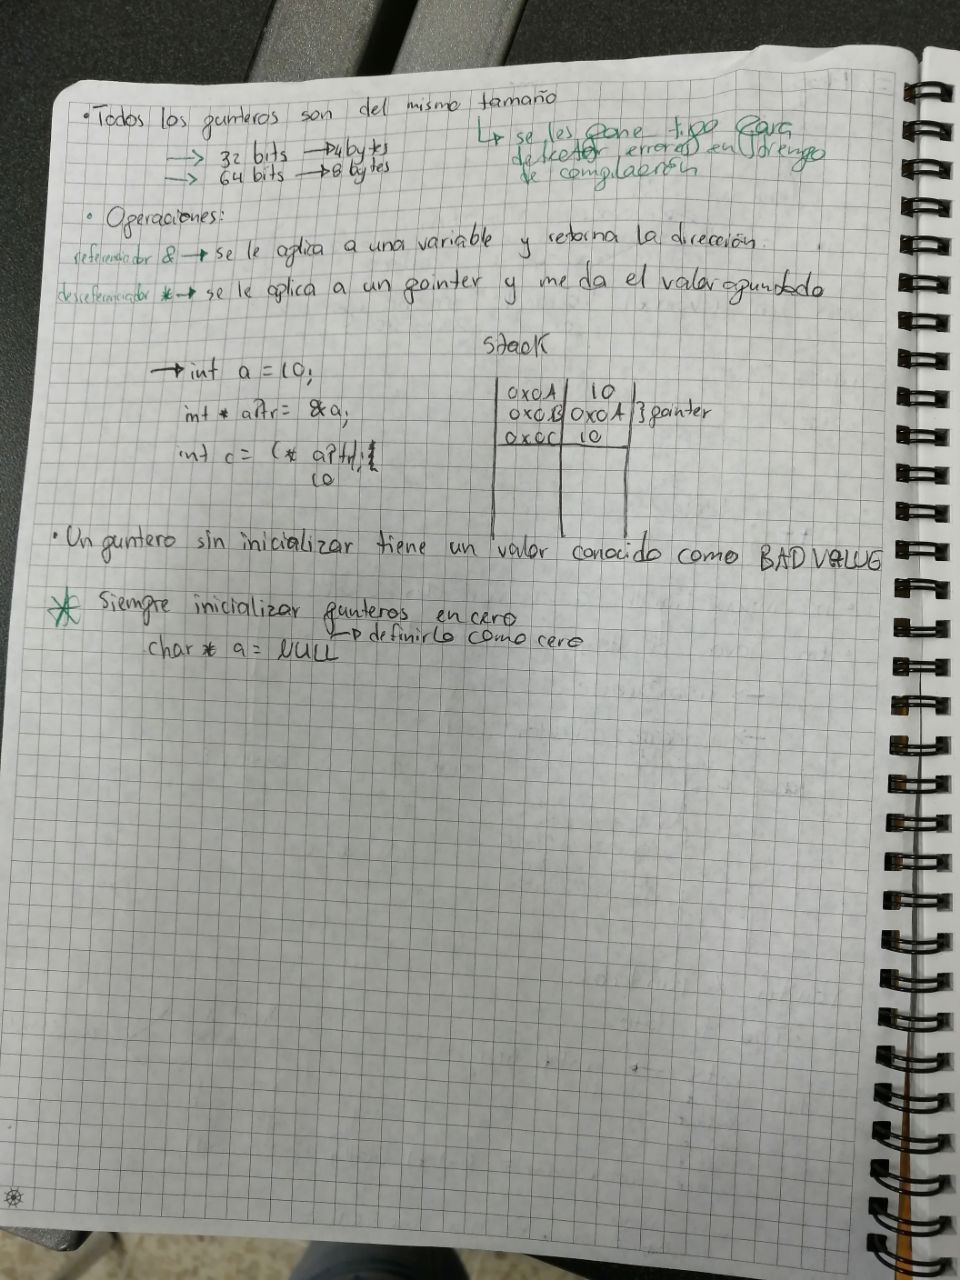 • Todos los punteros son del mismo tamaño
→ 32 bits → 4 bytes
→ 64 bits → 8 bytes
↳ se les pone tipo para
detectar errores en tiempo
de compilación
• Operaciones:
referenciador & → se le aplica a una variable y retorna la dirección.
desreferenciador * → se le aplica a un pointer y me da el valor apuntado
→ int a = 10;
int * aPtr = &a;
int c = (* aPtr);
10
Stack
0x0A 10
0x0B 0x0A } pointer
0x0C 10
• Un puntero sin inicializar tiene un valor conocido como BAD VALUE
* Siempre inicializar punteros en cero
↳ definirlo como cero
char * a = NULL